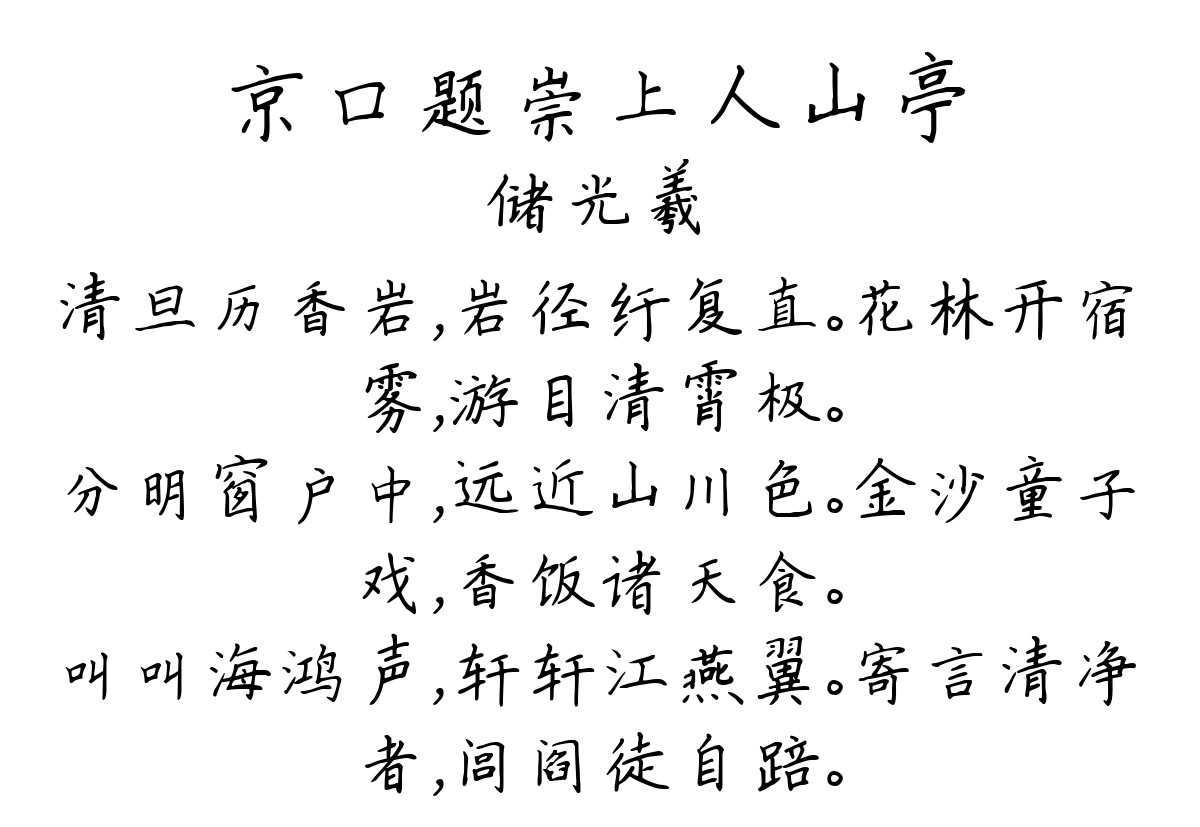 京口题崇上人山亭
储光羲
清旦历香岩,岩径纡复直。花林开宿
雾,游目清霄极。
分明窗户中,远近山川色。金沙童子
戏,香饭诸天食。
叫叫海鸿声,轩轩江燕翼。寄言清净
者,闾阎徒自踣。